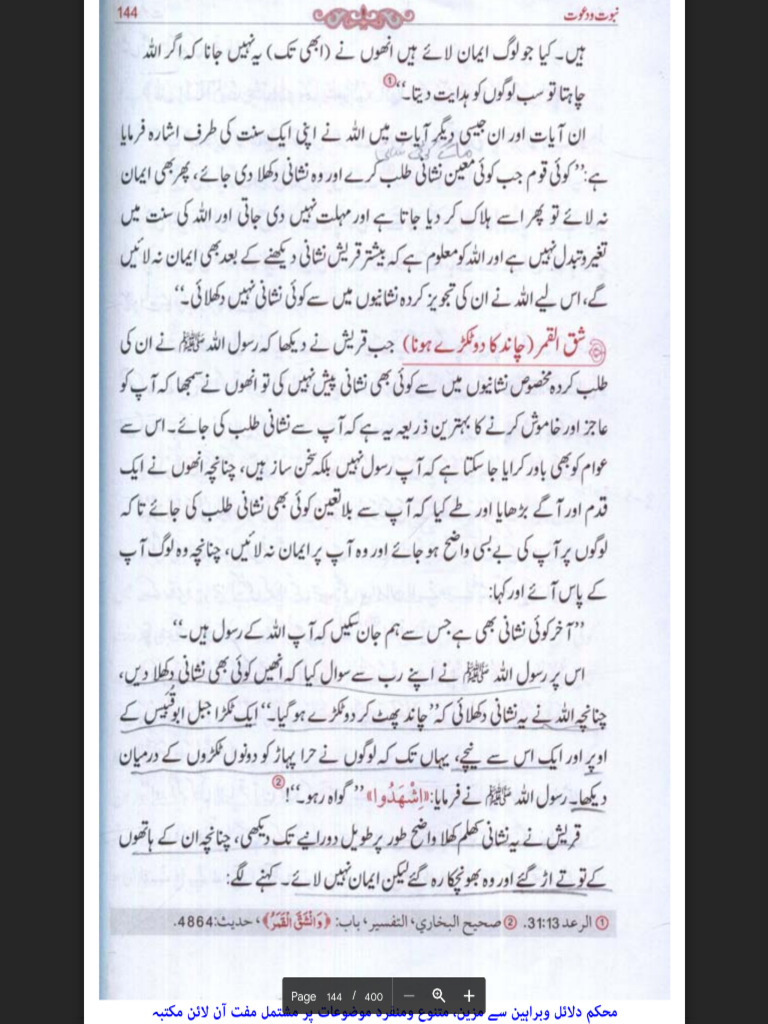 نبوت و دعوت 144
ہیں۔ کیا جو لوگ ایمان لائے ہیں انھوں نے (ابھی تک) یہ نہیں جانا کہ اگر اللہ
چاہتا تو سب لوگوں کو ہدایت دیتا۔‘‘①
ان آیات اور ان جیسی دیگر آیات میں اللہ نے اپنی ایک سنت کی طرف اشارہ فرمایا
ہے: ’’کوئی قوم جب کوئی معین نشانی طلب کرے اور وہ نشانی دکھلا دی جائے، پھر بھی ایمان
نہ لائے تو پھر اسے ہلاک کر دیا جاتا ہے اور مہلت نہیں دی جاتی اور اللہ کی سنت میں
تغیر و تبدل نہیں ہے اور اللہ کو معلوم ہے کہ بیشتر قریش نشانی دیکھنے کے بعد بھی ایمان نہ لائیں
گے، اس لیے اللہ نے ان کی تجویز کردہ نشانیوں میں سے کوئی نشانی نہیں دکھلائی۔‘‘
شق القمر (چاند کا دو ٹکڑے ہونا) جب قریش نے دیکھا کہ رسول اللہ ﷺ نے ان کی
طلب کردہ مخصوص نشانیوں میں سے کوئی بھی نشانی پیش نہیں کی تو انھوں نے سمجھا کہ آپ کو
عاجز اور خاموش کرنے کا بہترین ذریعہ یہ ہے کہ آپ سے نشانی طلب کی جائے۔ اس سے
عوام کو بھی باور کرایا جا سکتا ہے کہ آپ رسول نہیں بلکہ سخن ساز ہیں، چنانچہ انھوں نے ایک
قدم اور آگے بڑھایا اور طے کیا کہ آپ سے بلا تعین کوئی بھی نشانی طلب کی جائے تاکہ
لوگوں پر آپ کی بے بسی واضح ہو جائے اور وہ آپ پر ایمان نہ لائیں، چنانچہ وہ لوگ آپ
کے پاس آئے اور کہا:
’’آخر کوئی نشانی بھی ہے جس سے ہم جان سکیں کہ آپ اللہ کے رسول ہیں۔‘‘
اس پر رسول اللہ ﷺ نے اپنے رب سے سوال کیا کہ انھیں کوئی بھی نشانی دکھلا دیں،
چنانچہ اللہ نے یہ نشانی دکھلائی کہ ’’چاند پھٹ کر دو ٹکڑے ہو گیا۔‘‘ ایک ٹکڑا جبل ابوقُبیس کے
اوپر اور ایک اس سے نیچے، یہاں تک کہ لوگوں نے حرا پہاڑ کو دونوں ٹکڑوں کے درمیان
دیکھا۔ رسول اللہ ﷺ نے فرمایا: «اِشْهَدُوا» ’’گواہ رہو۔‘‘!②
قریش نے یہ نشانی کھلم کھلا واضح طور پر طویل دورانیے تک دیکھی، چنانچہ ان کے ہاتھوں
کے توتے اڑ گئے اور وہ بھونچکا رہ گئے لیکن ایمان نہیں لائے۔ کہنے لگے:
① الرعد 31:13. ② صحيح البخاري، التفسير، باب: ﴿وَانْشَقَّ الْقَمَرُ﴾، حديث: 4864.
Page 144 / 400 − +
محکم دلائل وبراہین سے مزین، متنوع ومنفرد موضوعات پر مشتمل مفت آن لائن مکتبہ